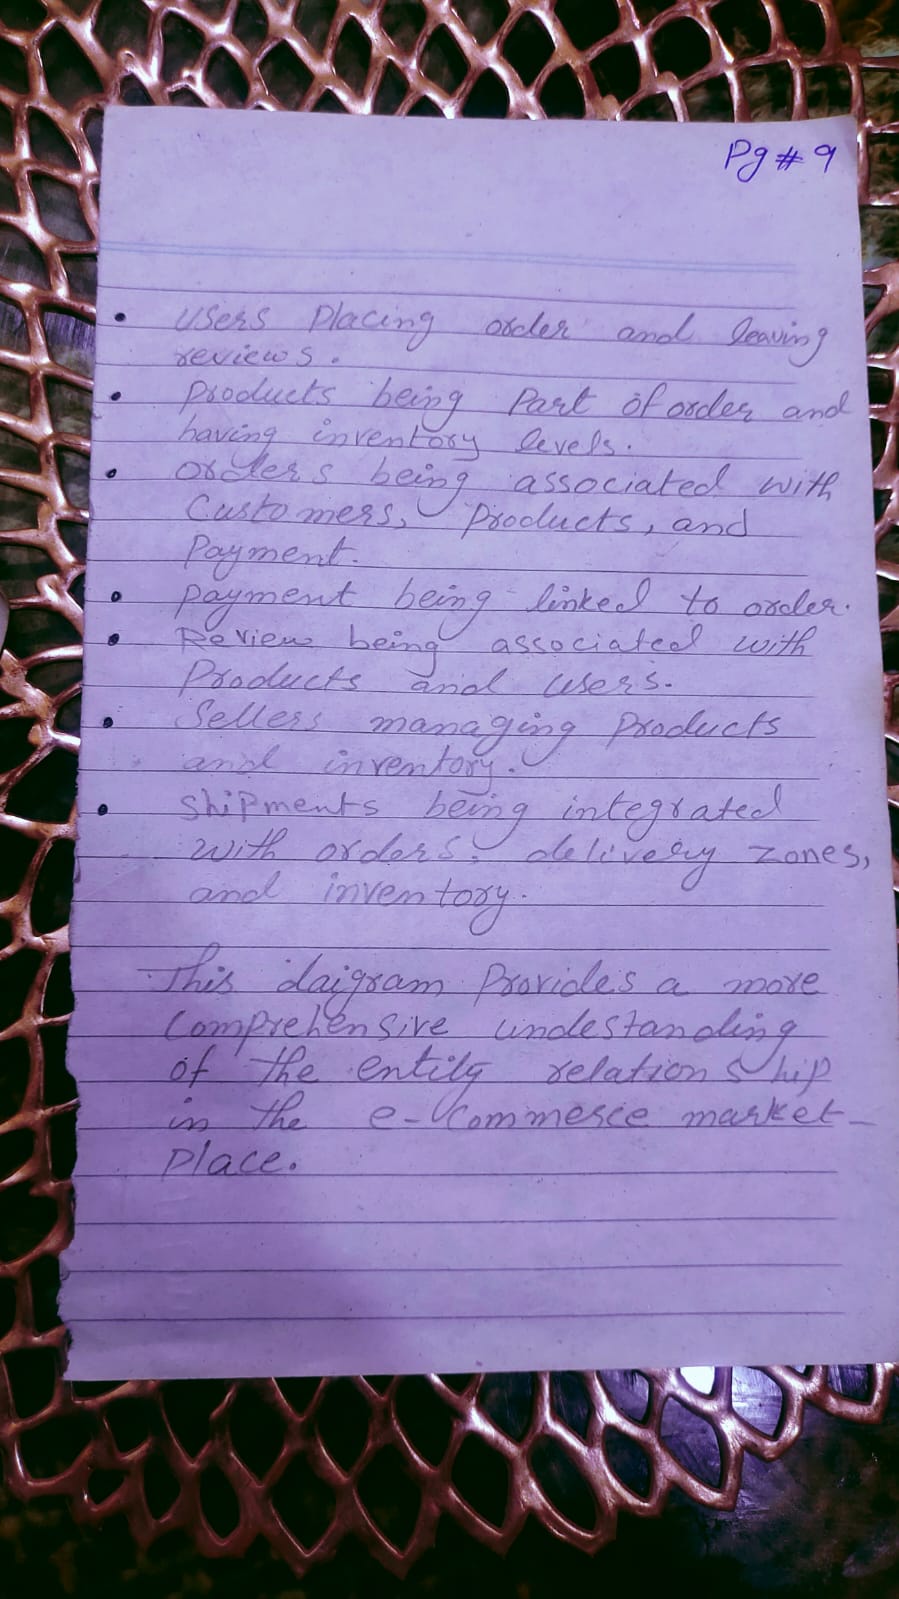 Pg # 9
• users placing order and leaving
reviews.
• products being part of order and
having inventory levels.
• orders being associated with
Customers, products, and
Payment.
• payment being linked to order.
• Review being associated with
Products and users.
• Sellers managing products
and inventory.
• shipments being integrated
with orders, delivery zones,
and inventory.
This daigram provides a more
Comprehensive undestanding
of the entity relationship
in the e-Commerce market-
place.